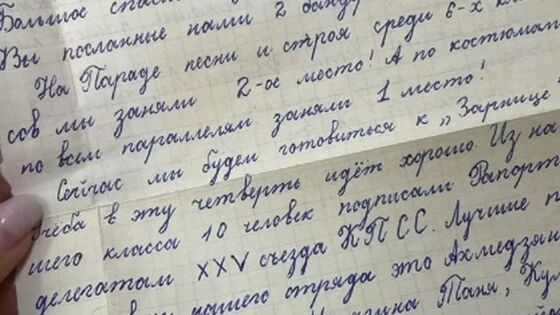 Большое
Вы посланные нами 2
На Параде песни и строя среди 6-х
сов мы заняли 2-ое место! А по костюмам
по всем параллелям заняли 1 место!
Сейчас мы будем готовиться к „Зарнице
Учёба в эту четверть идёт хорошо. Из на
шего класса 10 человек подписали Рапорт
делегатам XXV съезда КПСС. Лучшие
нашего отряда это
Таня,